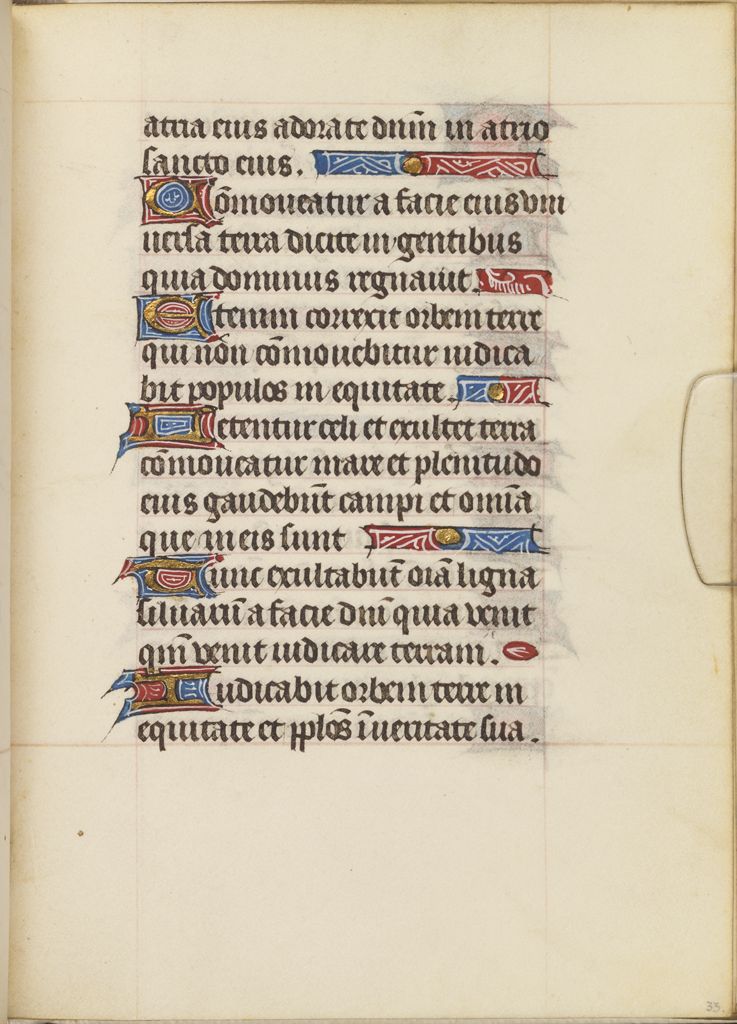 atria eius adorate dnm̄ in atrio
sancto eius.
Cōmoueatur a facie eius vni
uersa terra dicite in gentibus
quia dominus regnauit.
Etenim correxit orbem terre
qui non cōmouebitur iudica
bit populos in equitate.
Letentur celi et exultet terra
cōmoueatur mare et plenitudo
eius gaudebūt campi et omīa
que in eis sunt
Tunc exultabūt oīa ligna
siluarū a facie dnī quia venit
qm̄ venit iudicare terram.
Iudicabit orbem terre in
equitate et pplōs ī ueritate sua.
33